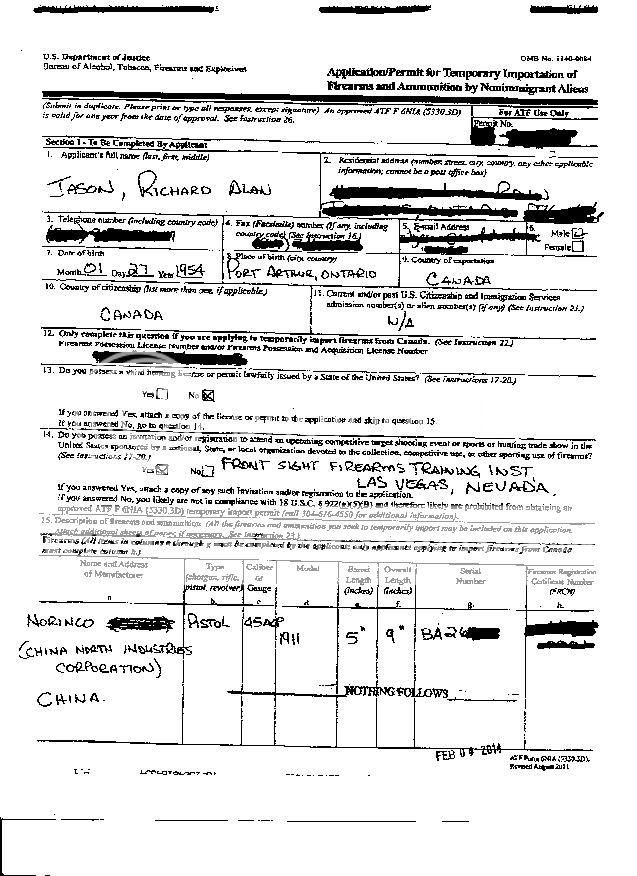 U.S. Department of Justice
Bureau of Alcohol, Tobacco, Firearms and Explosives
OMB No. 1140-0084
Application/Permit for Temporary Importation of
Firearms and Ammunition by Nonimmigrant Aliens
(Submit in duplicate. Please print or type all responses, except signature) An approved ATF F 6NIA (5330.3D)
is valid for one year from the date of approval. See Instruction 26.
For ATF Use Only
Permit No.
Section 1 - To Be Completed By Applicant
1. Applicant's full name (last, first, middle)
JASON, RICHARD ALAN
2. Residential address (number street, city, country, any other applicable
information; cannot be a post office box)
3. Telephone number (including country code)
4. Fax (Facsimile) number (If any, including
country code) (See Instruction 16.)
5. E-mail Address
6.
Male
Female
7. Date of birth
Month 01 Day 27 Year 1954
8. Place of birth (city, country)
PORT ARTHUR, ONTARIO
9. Country of exportation
CANADA
10. Country of citizenship (list more than one, if applicable.)
CANADA
11. Current and/or past U.S. Citizenship and Immigration Services
admission number(s) or alien number(s) (if any) (See Instruction 23.)
N/A
12. Only complete this question if you are applying to temporarily import firearms from Canada. (See Instruction 22.)
Firearms Possession License Number and/or Firearms Possession and Acquisition License Number
13. Do you possess a valid hunting license or permit lawfully issued by a State of the United States? (See Instructions 17-20.)
Yes No
If you answered Yes, attach a copy of the license or permit to the application and skip to question 15.
If you answered No, go to question 14.
14. Do you possess an invitation and/or registration to attend an upcoming competitive target shooting event or sports or hunting trade show in the
United States sponsored by a national, State, or local organization devoted to the collection, competitive use, or other sporting use of firearms?
(See Instructions 17-20.)
Yes No FRONT SIGHT FIREARMS TRAINING INST.
LAS VEGAS, NEVADA.
If you answered Yes, attach a copy of any such invitation and/or registration to the application.
If you answered No, you likely are not in compliance with 18 U.S.C. § 922(g)(5)(B) and therefore likely are prohibited from obtaining an
approved ATF F 6NIA (5330.3D) temporary import permit (call 304-616-4550 for additional information).
15. Description of firearms and ammunition: (All the firearms and ammunition you seek to temporarily import may be included on this application.
Attach additional sheets of paper if necessary. See Instruction 23.)
Firearms (All items in columns a through g must be completed by the applicant; only applicants applying to import firearms from Canada
must complete column h.)
Name and Address
of Manufacturer
Type
(shotgun, rifle,
pistol, revolver)
Caliber
or
Gauge
Model
Barrel
Length
(inches)
Overall
Length
(inches)
Serial
Number
Firearms Registration
Certificate Number
(FRCN)
a b c d e. f. g. h.
NORINCO PISTOL 45ACP 1911 5" 9" BA26
(CHINA NORTH INDUSTRIES
CORPORATION)
CHINA.
NOTHING FOLLOWS
FEB 04 2014
ATF Form 6NIA (5330.3D)
Revised August 2011